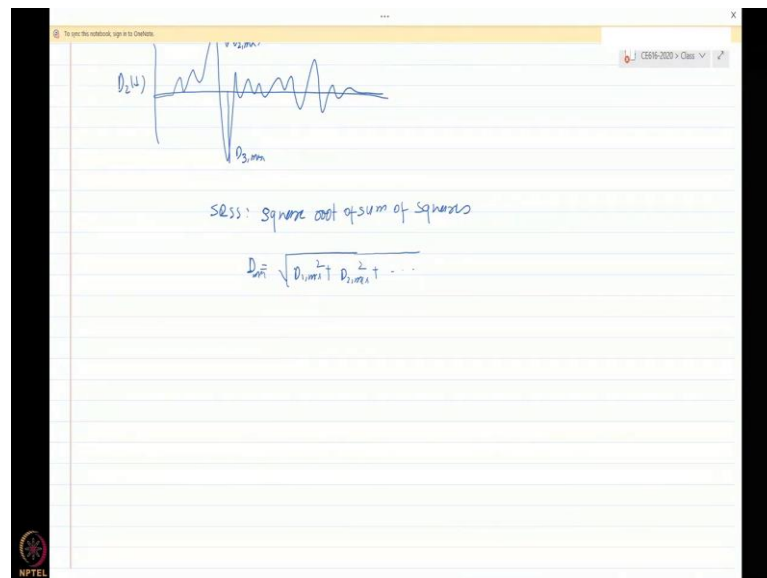 ...
X
To sync this notebook, sign in to OneNote.
CE616-2020 > Class
D₂(t)
D₃,max
SRSS: square root of sum of squares
Dₘ = √ D₁,max² + D₂,max² + ...
NPTEL